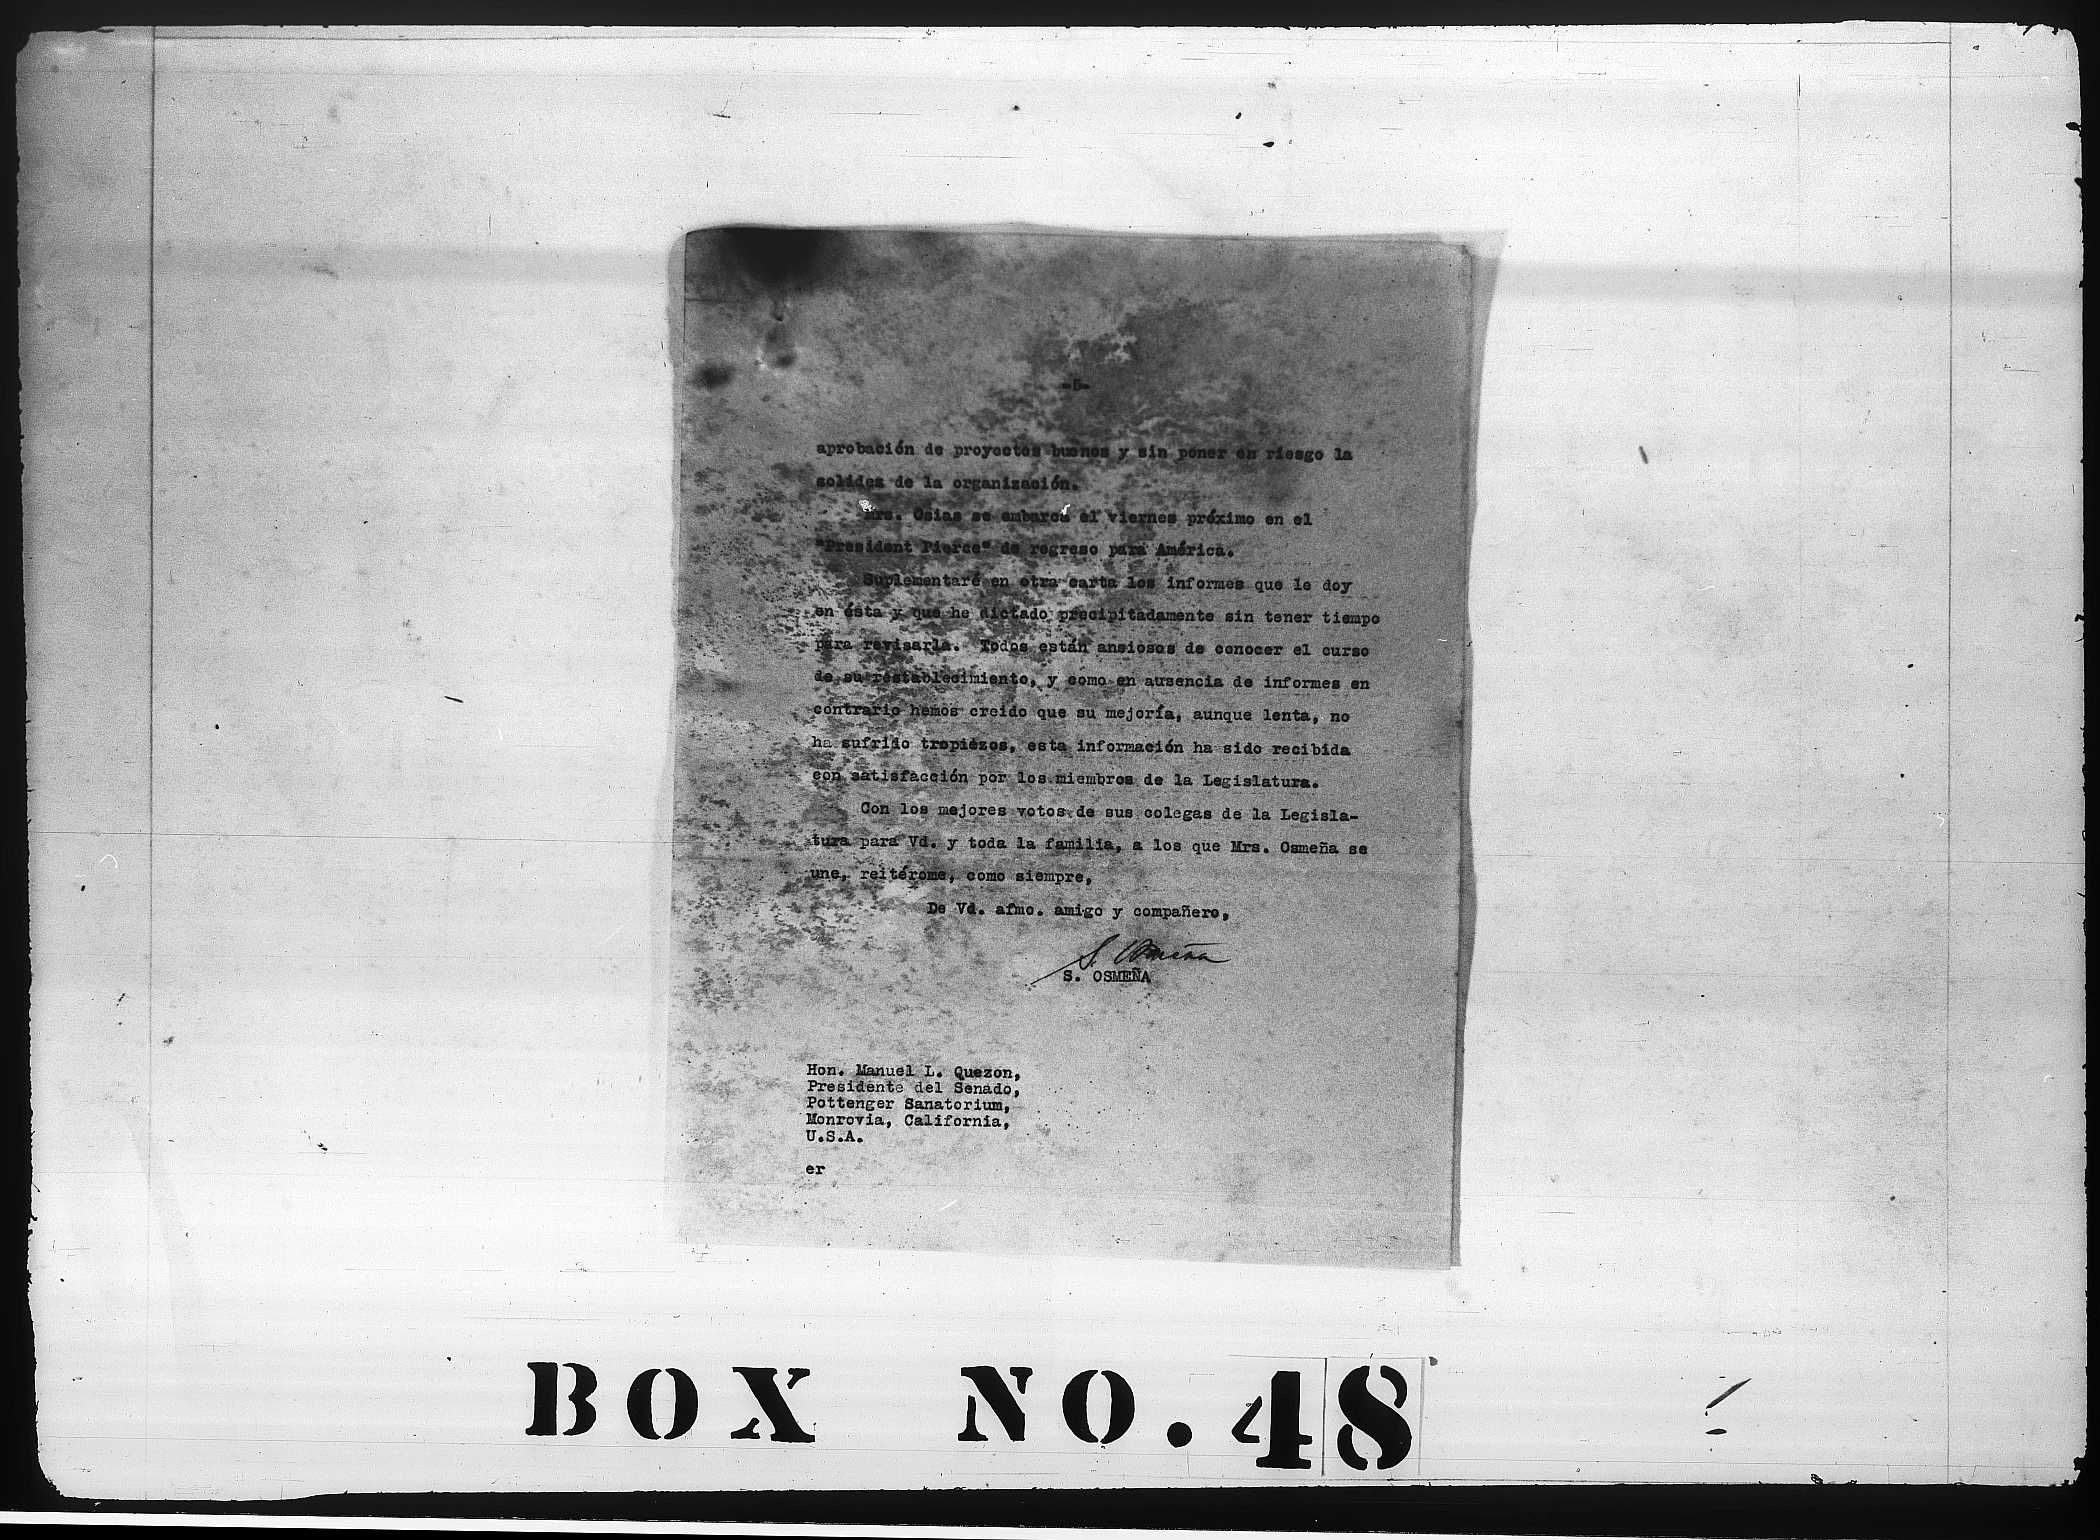 -5-
aprobación de proyectos buenos y sin poner en riesgo la
solidez de la organización.
Mrs. Osias se embarca el viernes próximo en el
"President Pierce" de regreso para América.
Suplementaré en otra carta los informes que le doy
en ésta y que he dictado precipitadamente sin tener tiempo
para revisarla. Todos están ansiosos de conocer el curso
de su restablecimiento, y como en ausencia de informes en
contrario hemos creido que su mejoría, aunque lenta, no
ha sufrido tropiezos, esta información ha sido recibida
con satisfacción por los miembros de la Legislatura.
Con los mejores votos de sus colegas de la Legisla-
tura para Vd. y toda la familia, a los que Mrs. Osmeña se
une, reitérome, como siempre,
De Vd. afmo. amigo y compañero,
S. Osmeña
S. OSMEÑA
Hon. Manuel L. Quezon,
Presidente del Senado,
Pottenger Sanatorium,
Monrovia, California,
U.S.A.
er
BOX NO. 48